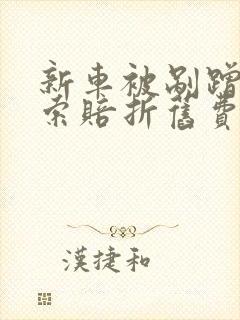 新車被剮蹭
索賠折舊費
漢捷和